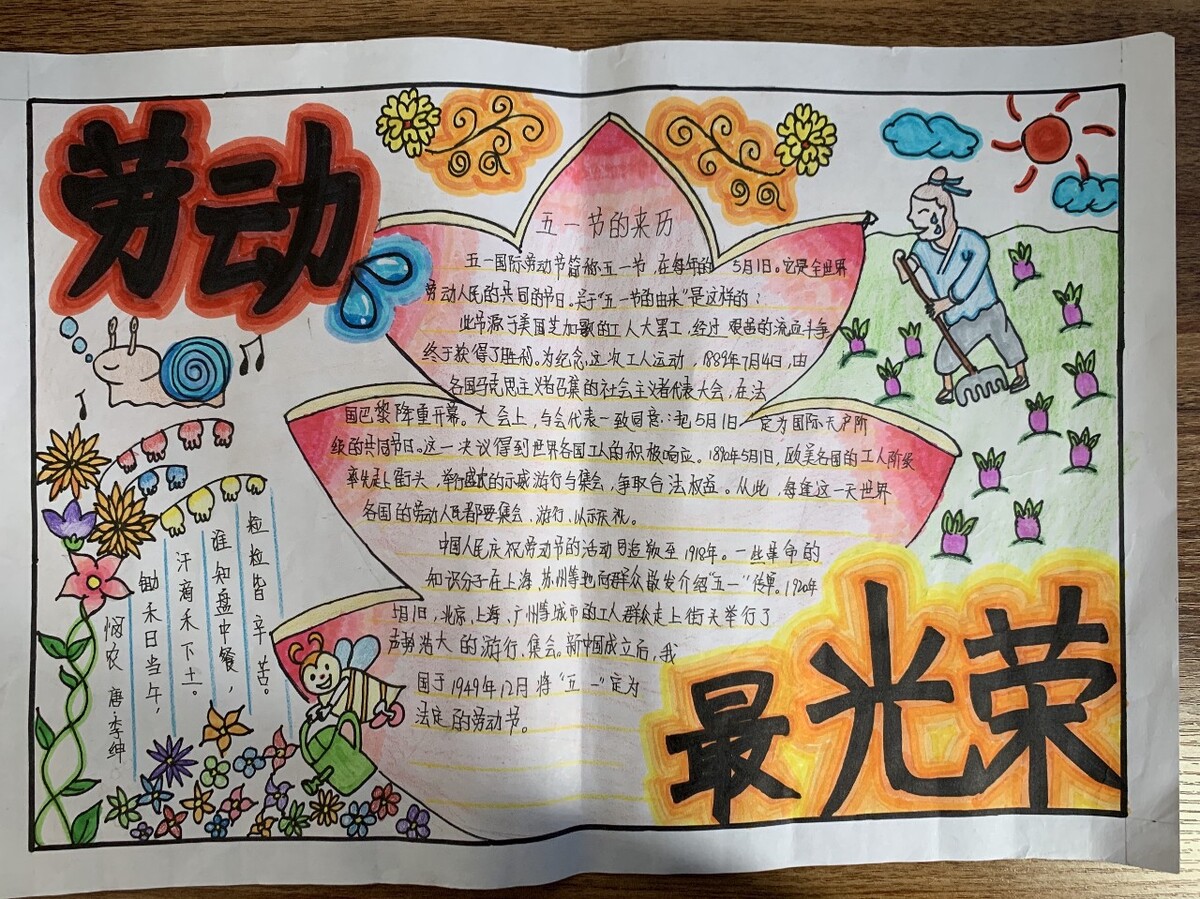 劳动
五一节的来历
五一国际劳动节简称五一节，在每年的 5月1日。它是全世界
劳动人民的共同的节日。关于“五一节的由来”是这样的：
此节源于美国芝加歌的工人大罢工，经过 艰邑的流血斗争
终于获得了胜利。为纪念这次工人运动，1889年7月4日，由
各国马克思主义者召集的社会主义者代表大会，在法
国巴黎隆重开幕。大会上，与会代表一致同意：把5月1日 定为国际无产阶
级的共同节日。这一决议得到世界各国工人的积极响应。1890年5月1日，欧美各国的工人阶级
率先走上街头，举行盛大的示威游行与集会，争取合法权益。从此，每逢这一天世界
各国的劳动人民都要集会，游行，以示庆祝。
中国人民庆祝劳动节的活动可追溯至1918年。一些革命的
知识分子在上海、苏州等地向群众散发介绍“五一”传单。1920年
5月1日，北京、上海、广州等城市的工人群众走上街头举行了
声势浩大 的游行、集会。新中国成立后，我
国于1949年12月 将“五一”定为
法定的劳动节。
悯农 唐·李绅
锄禾日当午，
汗滴禾下土。
谁知盘中餐，
粒粒皆辛苦。
最光荣